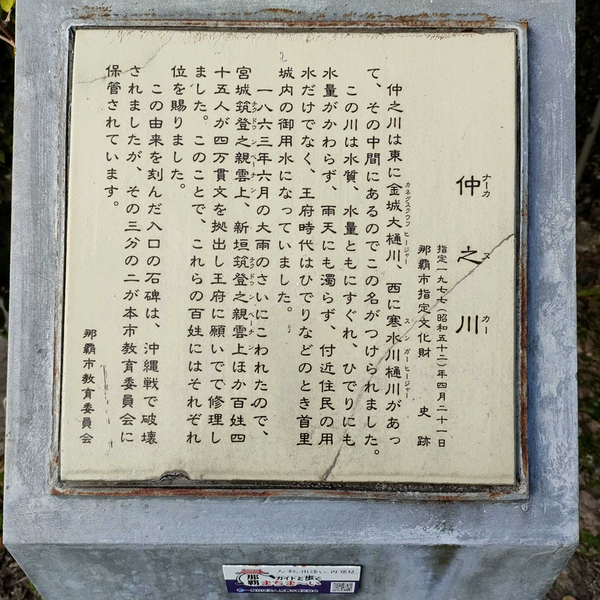 仲之川
ナーカ ヌ カー
指定一九七七(昭和五十二)年四月二十一日
那覇市指定文化財 史跡
仲之川は東に金城大樋川、西に寒水川樋川があっ
カネグスクウフヒージャー スンガーヒージャー
て、その中間にあるのでこの名がつけられました。
この川は水質、水量ともにすぐれ、ひでりにも
水量がかわらず、雨天にも濁らず、付近住民の用
水だけでなく、王府時代はひでりなどのとき首里
城内の御用水になっていました。
一八六三年六月の大雨のさいにこわれたので、
宮城筑登之親雲上、新垣筑登之親雲上ほか百姓四
チクドゥン ペーチン チクドゥン ペーチン
十五人が四万貫文を拠出し王府に願いでて修理し
ました。このことで、これらの百姓にはそれぞれ
位を賜りました。
この由来を刻んだ入口の石碑は、沖縄戦で破壊
されましたが、その三分の二が本市教育委員会に
保管されています。
那覇市教育委員会
那覇
ガイドと歩く
まちま〜い